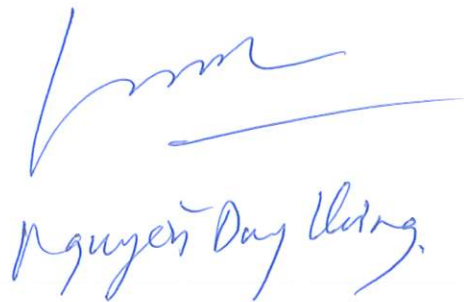 Nguyễn Duy Hưng.